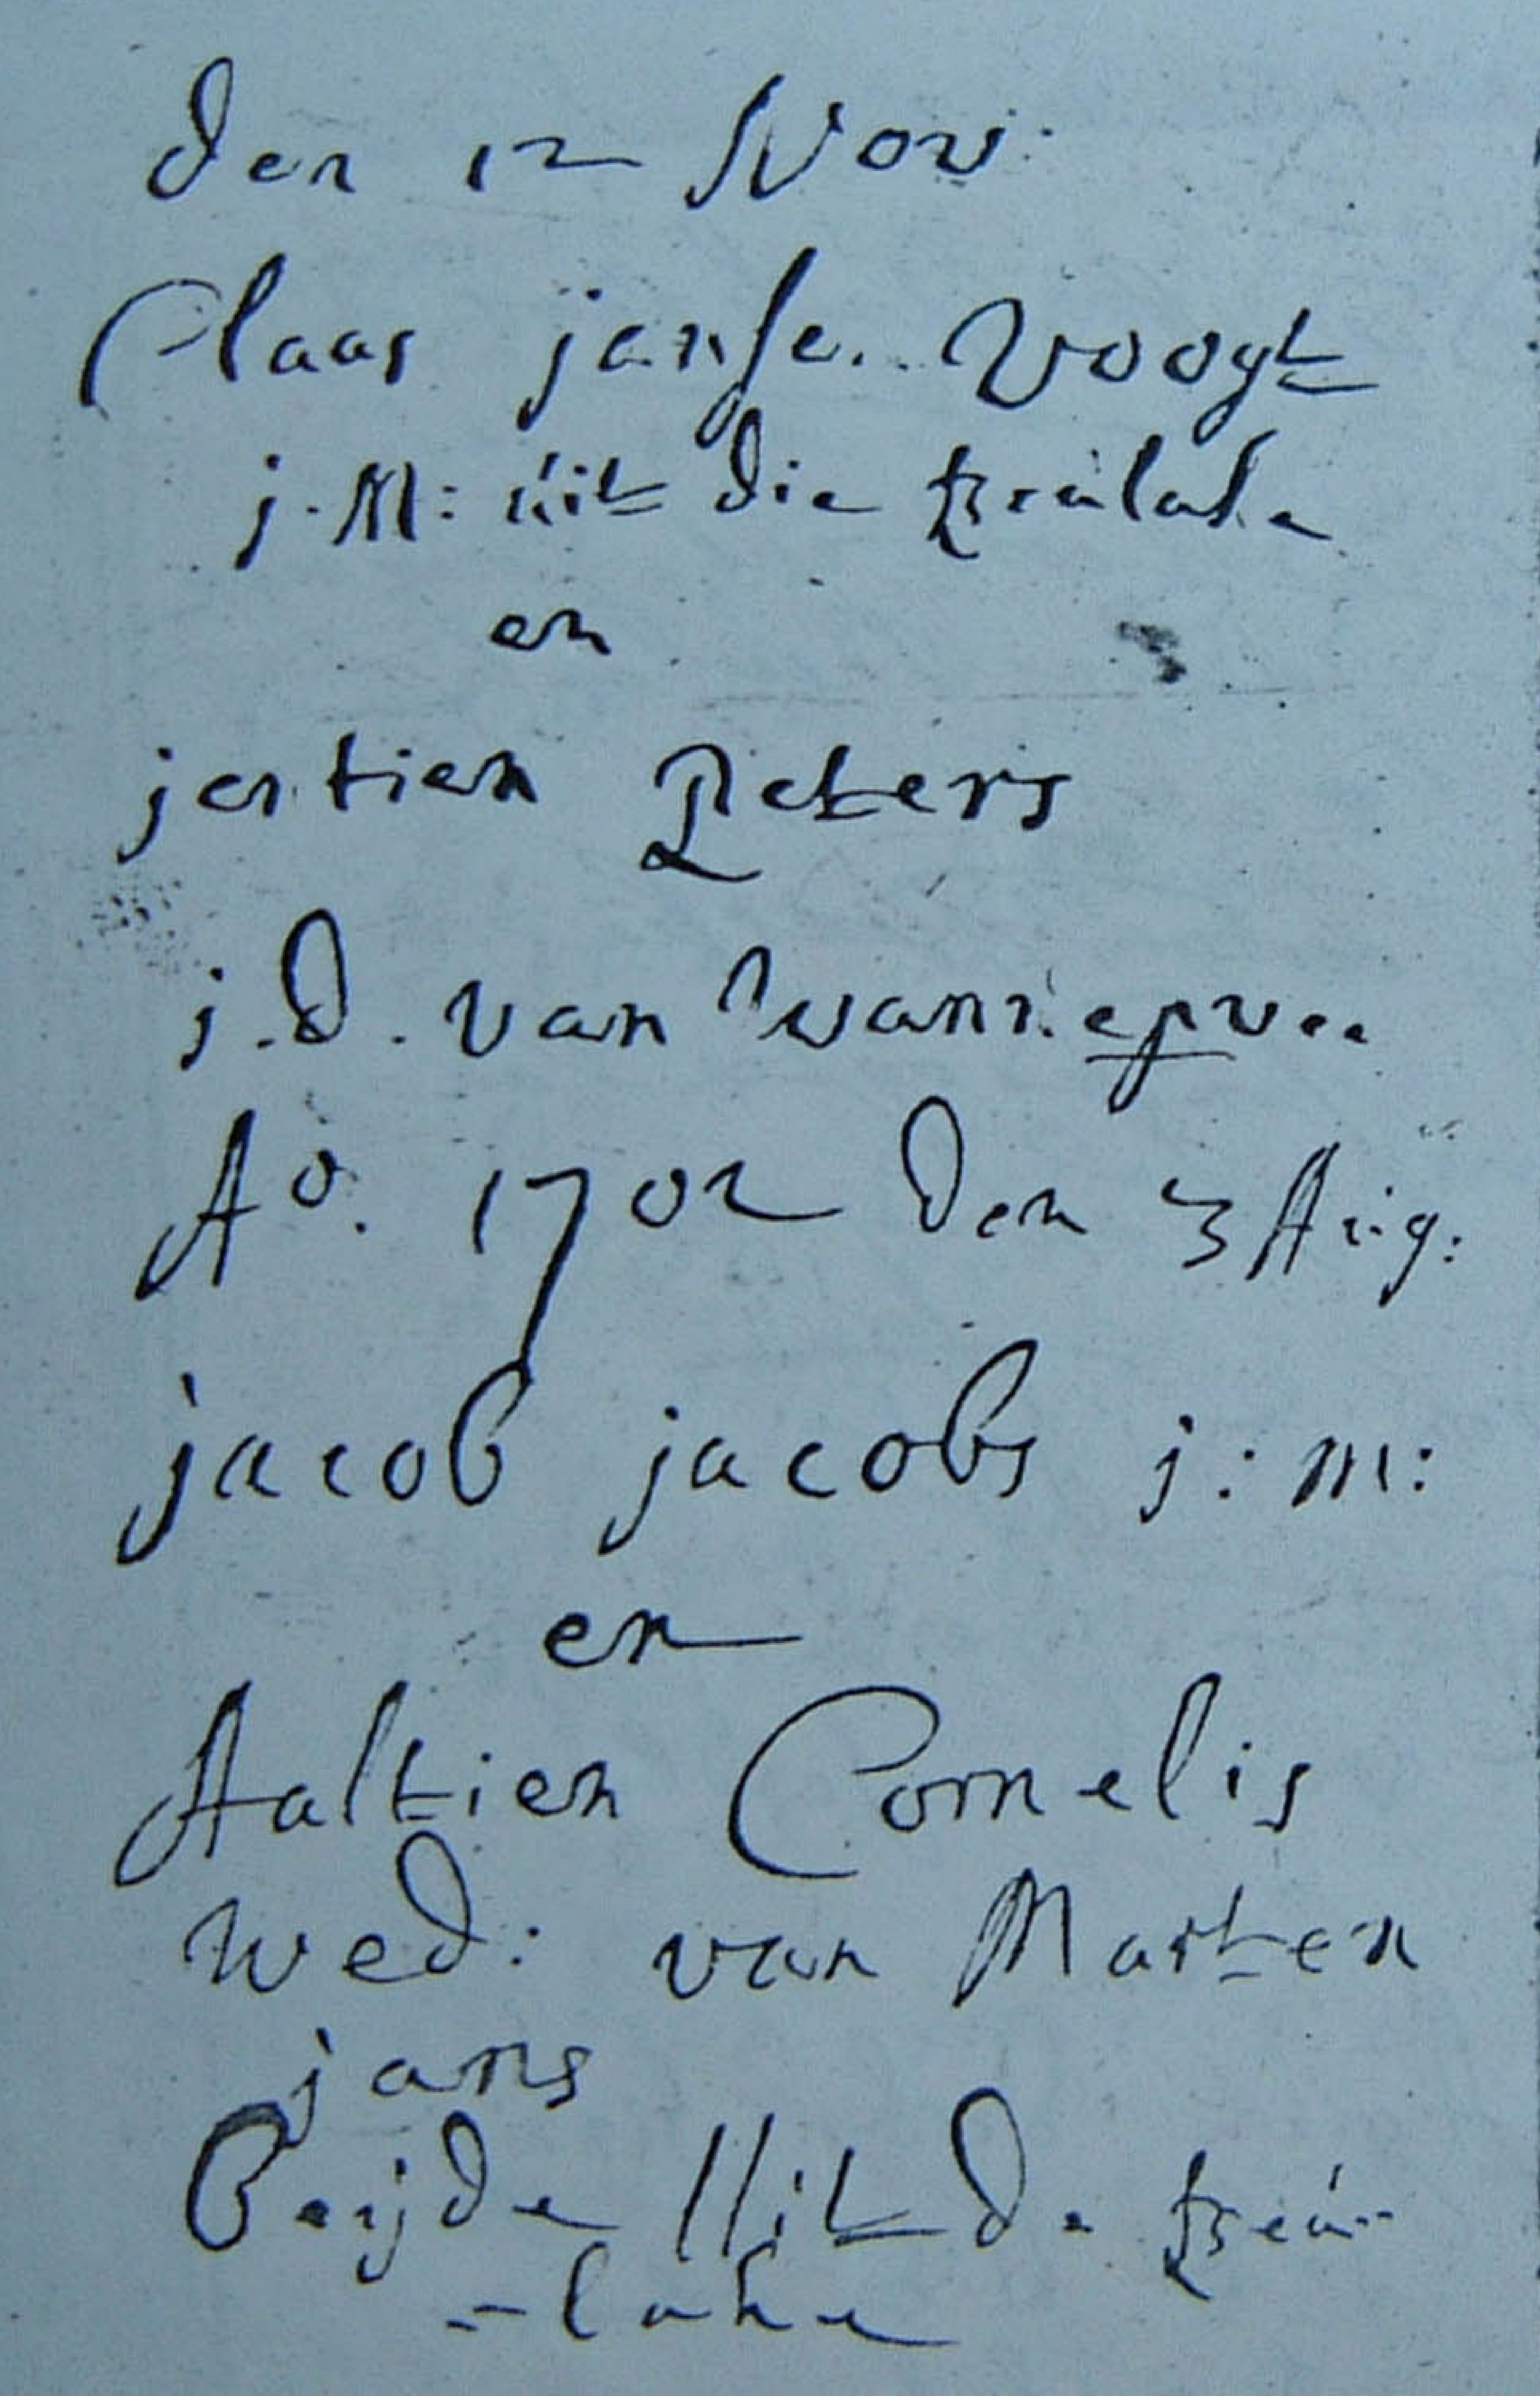 den 12 Nov:
Claas janse. Voogt
j.M: uit die kreulake
en
jantien Peters
j.d. van Wannepvee
A°. 1702 den 3 Aug:
jacob jacobs j:m:
en
Aaltien Cornelis
wed: van Marten
jans
Beijde Uit de kreu-
-lake